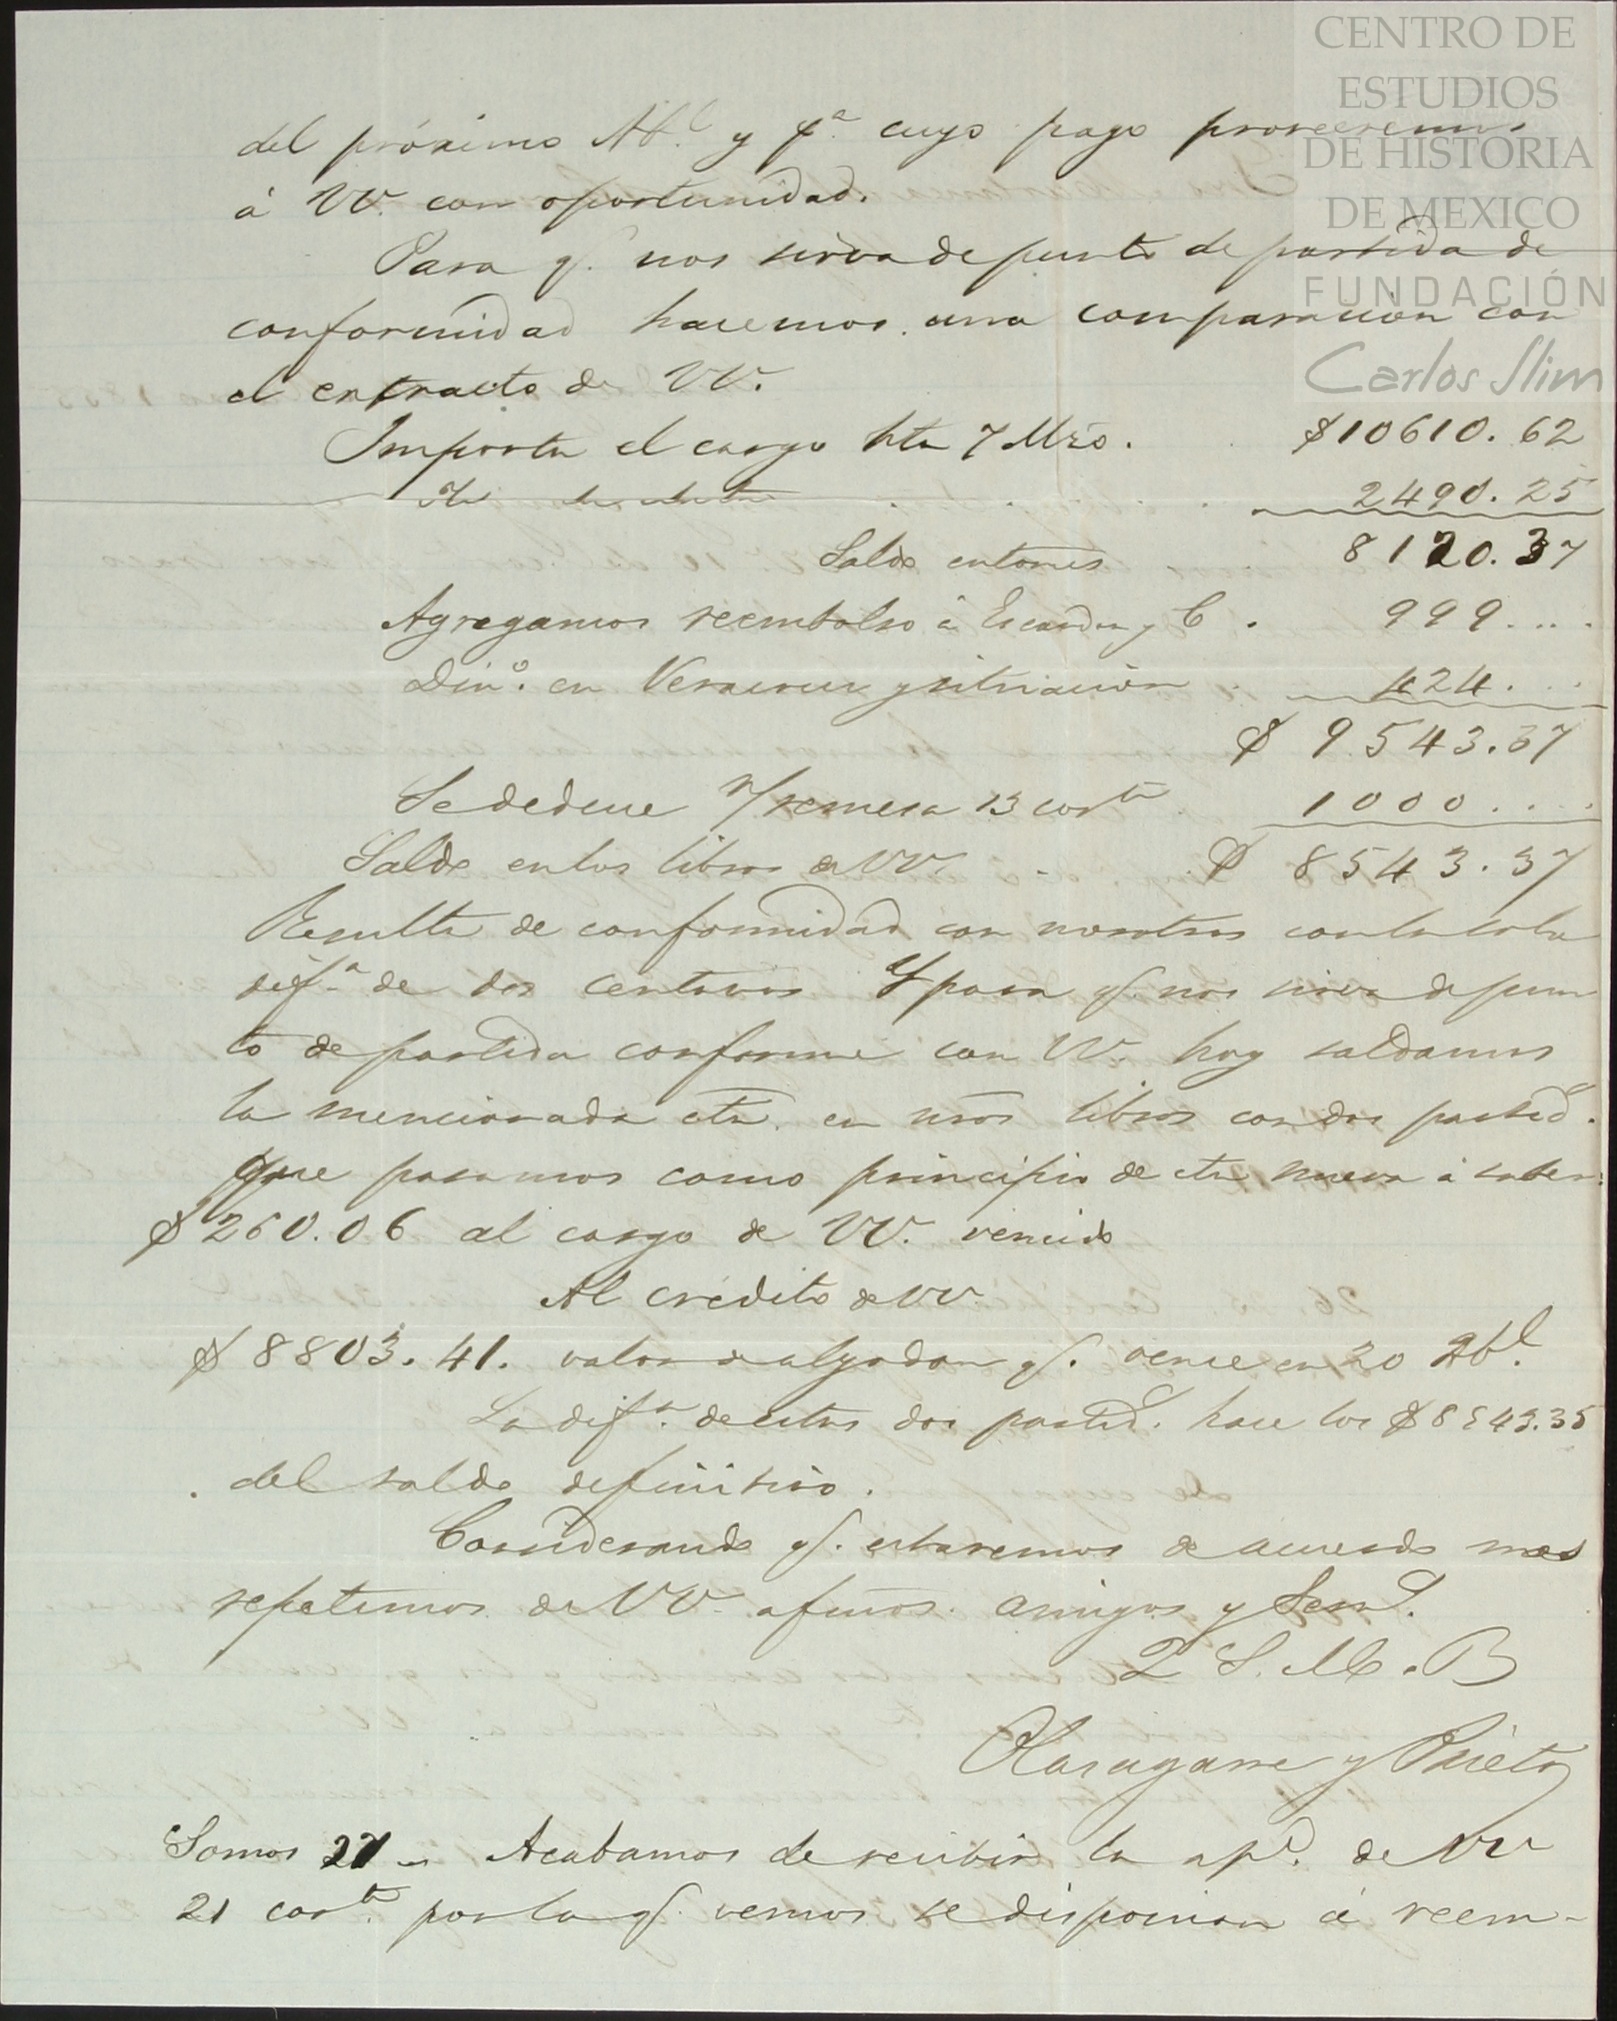 CENTRO DE
ESTUDIOS
DE HISTORIA
DE MEXICO
FUNDACIÓN
Carlos Slim
del próximo Abl. y pª. cuyo pago proveeremos
á VV. con oportunidad.
Para q. nos sirva de punto de partida de
conformidad hacemos una comparacion con
el extracto de VV.
Importa el cargo hta 7 Mzo. $10610.62
2490.25
Saldo entonces 8120.37
Agregamos reembolso á Escandon y C. 999....
Dinº. en Veracruz y situacion 424...
$ 9543.37
Se deduce n/remesa 13 corte 1000....
Saldo en los libros de VV. $ 8543.37
Resulta de conformidad con nosotros con la sola
difª. de dos centavos Y para q. nos sirva de pun
to de partida conforme con VV. hoy saldamos
la mencionada cta. en nros libros con dos partid.
que pasamos como principio de cta nueva á saber:
$260.06 al cargo de VV. vencido
Al crédito de VV.
$8803.41. valor de algodon q. vence en 20 Abl.
La difª. de estas dos partid. hace los $8543.35
del saldo definitivo.
Considerando q. estaremos de acuerdo nos
repetimos de VV. afmos. amigos y Serv.
Q S. M. B
Olasagarre y Prieto
Somos 27 - Acabamos de recibir la apd. de VV
21 corte. por la q. vemos se disponian á reem-